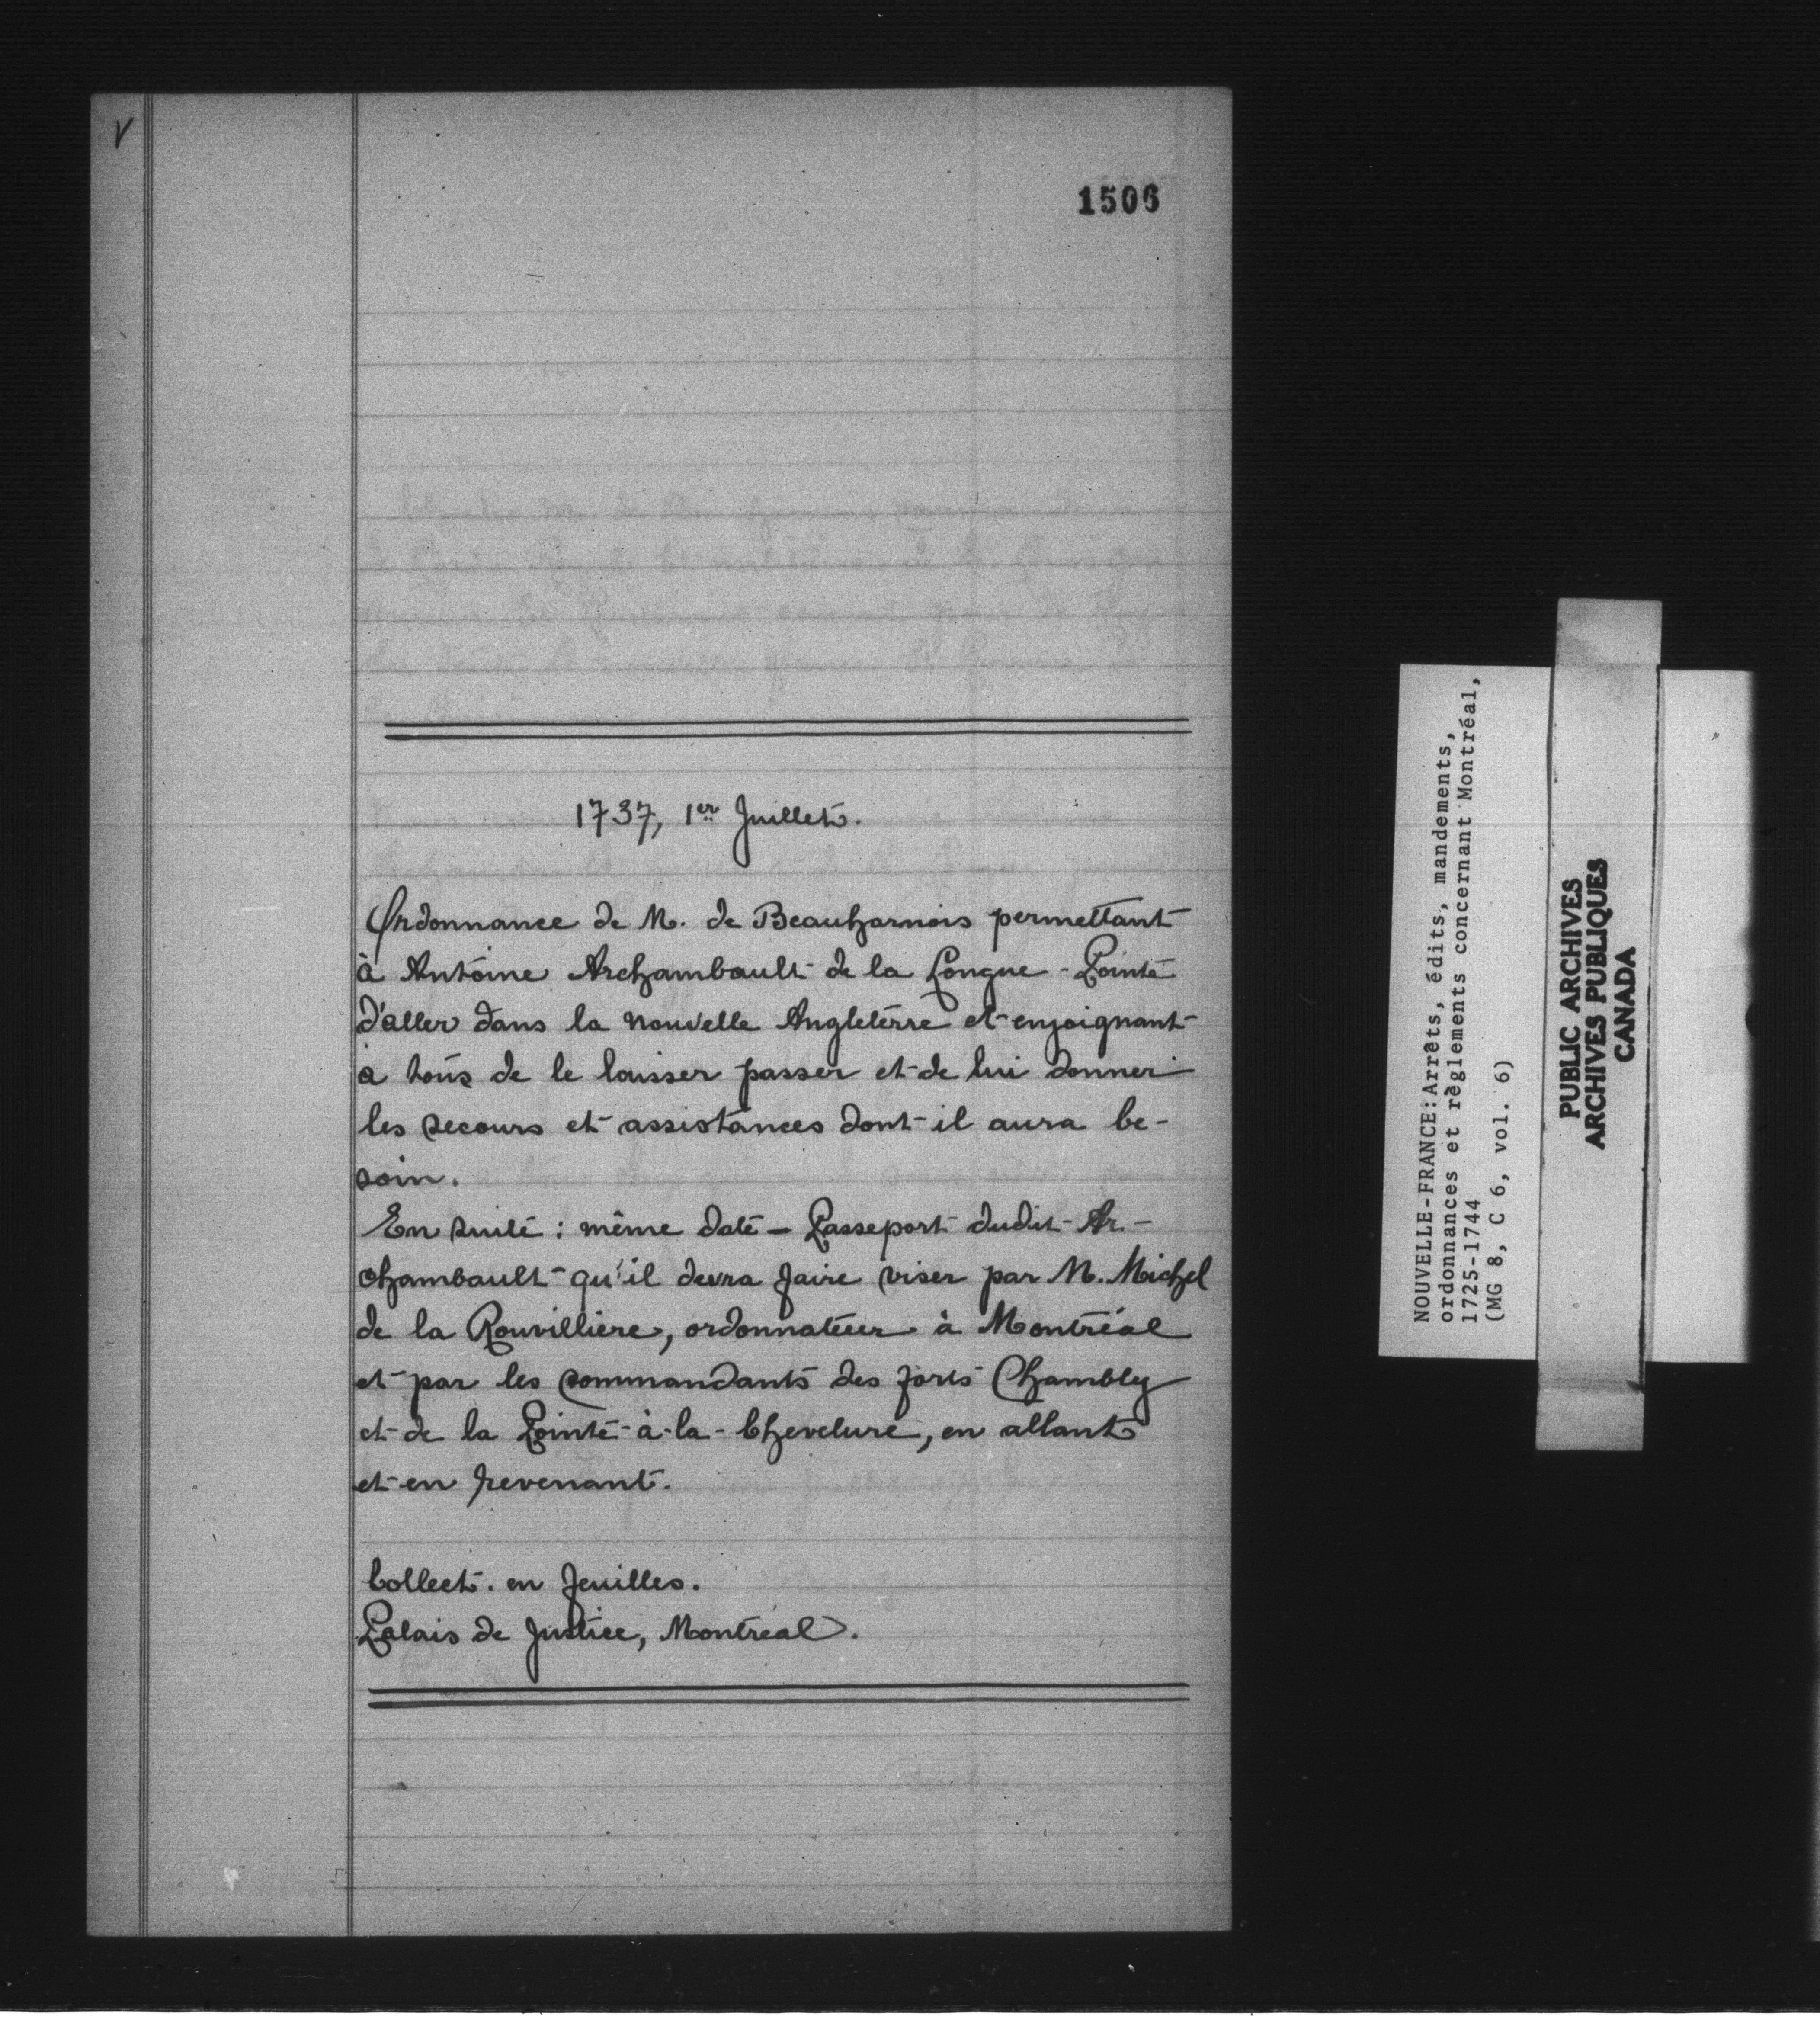 V
1506
1737, 1er Juillet.
Ordonnance de M. de Beauharnois permettant
à Antoine Archambault de la Longue-Pointe
d'aller dans la Nouvelle Angleterre et enjoignant
à tous de le laisser passer et de lui donner
les secours et assistances dont il aura be-
soin.
En suite : même date - Passeport dudit Ar-
chambault qu'il devra faire viser par M. Michel
de la Rouvillière, ordonnateur à Montréal
et par les commandants des forts Chambly
et de la Pointe-à-la-Chevelure, en allant
et en revenant.
Collect. en feuilles.
Palais de Justice, Montréal.
NOUVELLE-FRANCE: Arrêts, édits, mandements,
ordonnances et règlements concernant Montréal,
1725-1744
(MG 8, C 6, vol. 6)
PUBLIC ARCHIVES
ARCHIVES PUBLIQUES
CANADA